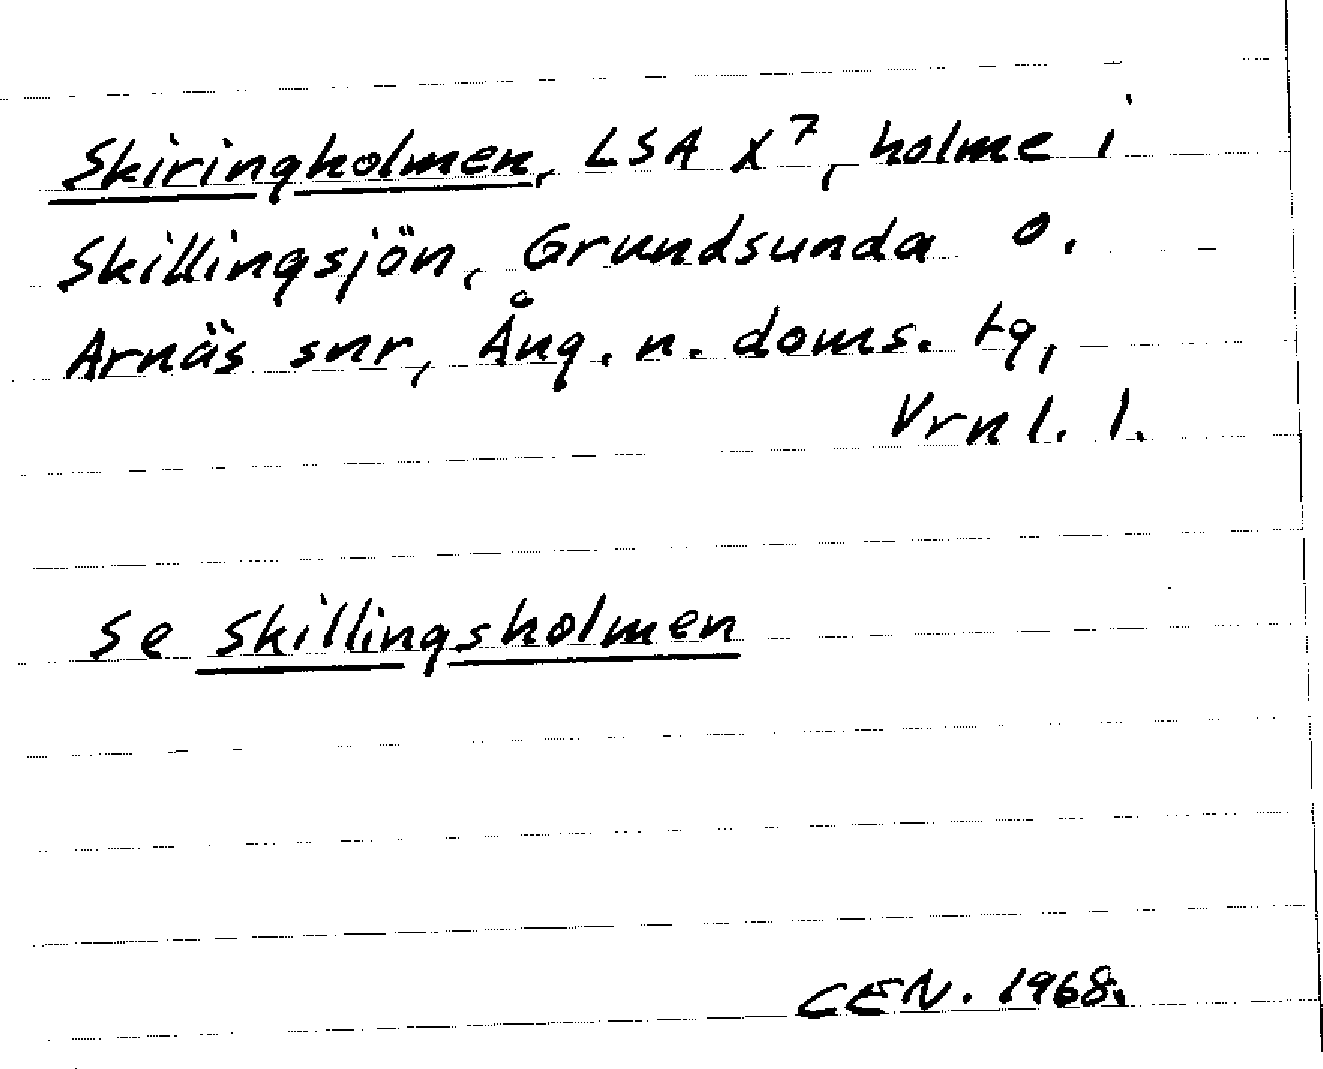 Skiringholmen, LSA X⁷, holme i
Skillingsjön, Grundsunda o.
Arnäs snr, Ång. n. doms. tg,
Vrnl. l.
Se Skillingsholmen
CEN. 1968.